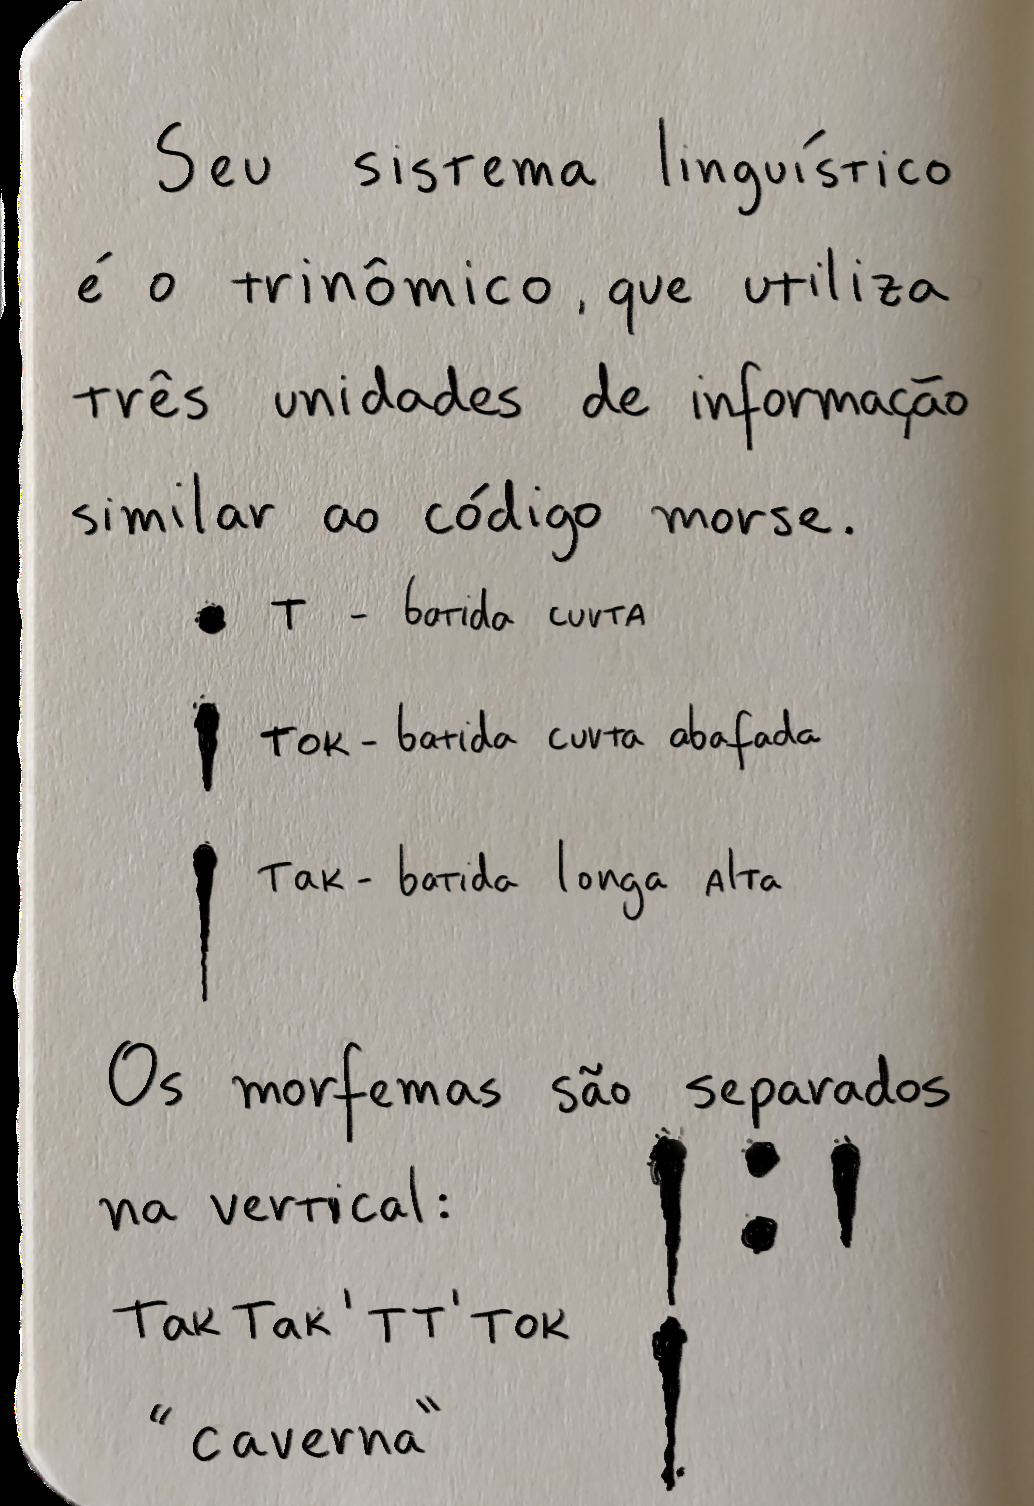 Seu sistema linguístico
é o trinômico, que utiliza
três unidades de informação
similar ao código morse.
T - batida curta
Tok - batida curta abafada
Tak - batida longa alta
Os morfemas são separados
na vertical:
TakTak'TT'Tok
"caverna"